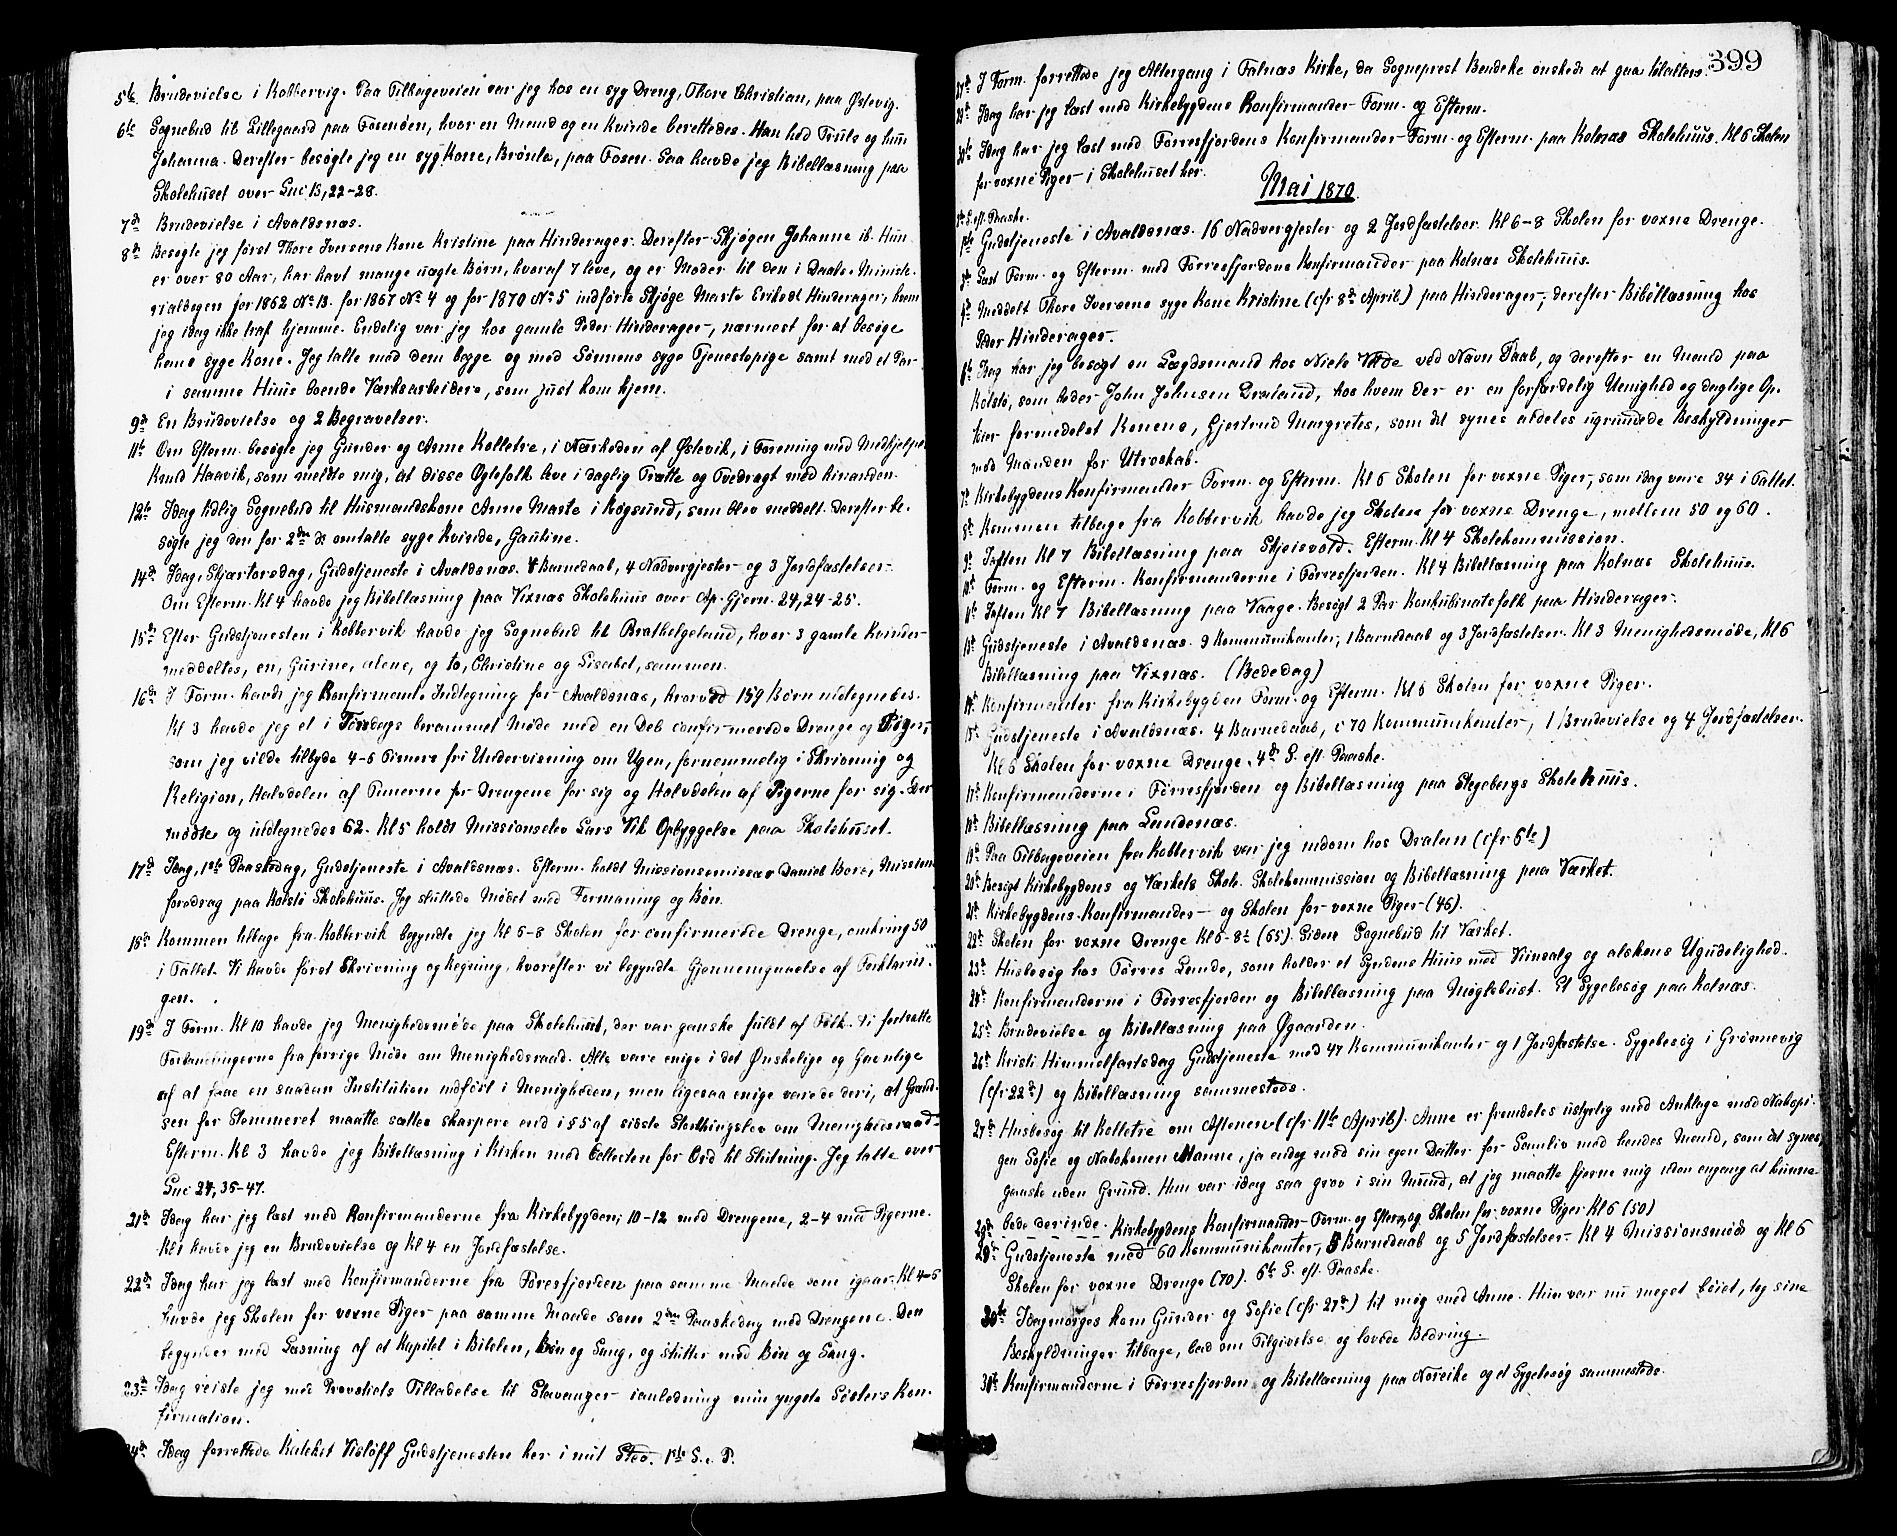 5te Brudevielse i Kobbervig. Paa Tilbageveien var jeg hos en syg Dreng, Thore Christian, paa Østevig.
6te Sognebud til Lillegaard paa Fosenøen, hvor en Mand og en Kvinde berettedes. Han hed Truls og hun
Johanna. Derefter besøgte jeg en syg Kone, Brønla, paa Fosen. Saa havde jeg Bibellæsning paa
Skolehuset over Luc 13, 22-28.
7de Brudevielse i Avaldsnæs.
8de Besøgte jeg først Thore Iversens Kone Kristine paa Hinderager. Derefter Skjøgen Johanne ib. Hun
er over 80 Aar, har havt mange uægte Børn, hvoraf 7 leve, og er Moder til den i Daabs-Ministe-
rialbogen for 1862 No 13. for 1867 No 4 og for 1870 No 5 indførte Skjøge Marte Eriksdt Hinderager, hvem
jeg idag ikke traf hjemme. Endelig var jeg hos gamle Peder Hinderager, nærmest for at besøge
hans syge Kone. Jeg talte med dem begge og med Sønnens syge Tjenestepige samt med et Par
i samme Huus boende Værksarbeidere, som just kom hjem.
9de En Brudevielse og 2 Begravelser.
11te Om Efterm. besøgte jeg Gunder og Anne Kolletre, i Nærheden af Østevik, i Forening med Medhjelper
Knud Haavik, som meldte mig, at disse Ægtefolk leve i daglig Trætte og Tvedragt med hinanden.
12te Idag tidlig Sognebud til Husmandskone Anne Marte i Høgsund, som blev meddelt. Derefter be-
søgte jeg den for 2den ds omtalte syge Kvinde, Gautine.
14de Idag, Skjærtorsdag, Gudstjeneste i Avaldsnæs. 8 Barnedaab, 4 Nadvergjester og 3 Jordfæstelser.
Om Efterm. Kl 4 havde jeg Bibellæsning paa Vixnæs Skolehuus over Ap. Gjern. 24, 24-25.
15de Efter Gudstjenesten i Kobbervik havde jeg Sognebud til Brathelgeland, hvor 3 gamle Kvinder
meddeltes, en, Gurine, alene, og to, Christine og Lisabet, sammen.
16de I Form. havde jeg Konfirmant-Indtegning for Avaldsnæs, hvorved 159 Børn indtegnedes.
Kl 3 havde jeg et i Tirsdags berammet Møde med en Deb confirmerede Drenge og Piger,
som jeg vilde tilbyde 4-6 Timers fri Undervisning om Ugen, fornemmelig i Skrivning og
Religion, Halvdelen af Timerne for Drengene for sig og Halvdelen af Pigerne for sig. Der
mødte og indtegnedes 62. Kl 5 holdt Missionselev Lars Vik Opbyggelse paa Skolehuset.
17de Idag, 1ste Paaskedag, Gudstjeneste i Avaldsnæs. Efterm. holdt Missionsemissær Daniel Bore, Missions-
foredrag paa Kolstø Skolehuus. Jeg sluttede Mødet med Formaning og Bøn.
18de Kommen tilbage fra Kobbervik begyndte jeg Kl 6-8 Skolen for confirmerede Drenge, omkring 50
i Tallet. Vi havde først Skrivning og Regning, hvorefter vi begyndte Gjennemgaaelse af Forklarin-
gen.
19de I Form. Kl 10 havde jeg Menighedsmøde paa Skolehuset, der var ganske fuldt af Folk. Vi fortsatte
Forhandlingerne fra forrige Møde om Menighedsraad. Alle vare enige i det Ønskelige og Gavnlige
af at faae en saadan Institution indført i Menigheden, men ligesaa enige vare de deri, at Grænd-
sen for Stemmeret maatte sættes skarpere end i §5 af sidste Storthingslov om Menighedsraad.
Efterm. Kl 3 havde jeg Bibellæsning i Kirken med Collecten for Ord til Slutning. Jeg talte over
Luc 24, 35-47.
21de Idag har jeg læst med Konfirmanderne fra Kirkebygden; 10-12 med Drengene, 2-4 med Pigerne.
Kl 1 havde jeg en Brudevielse og Kl 4 en Jordfæstelse.
22de Idag har jeg læst med Konfirmanderne fra Førresfjorden paa samme Maade som igaar. Kl 4-6
havde jeg Skolen for voxne Piger paa samme Maade som 2den Paaskedag med Drengene. Den
begynder med Læsning af et Kapitel i Bibelen, Bøn og Sang, og slutter med Bøn og Sang.
23de Idag reiste jeg med Provstiets Tilladelse til Stavanger ianledning min yngste Søsters Kon-
firmation.
24de Idag forrettede Kateket Visløff Gudstjenesten her i mit Sted. 1ste S. e. P.
399
27de I Form. forrettede jeg Altergang i Falnæs Kirke, da Sogneprest Bendeke ønskede at gaa tilalters.
28de Idag har jeg læst med Kirkebygdens Konfirmander Form. og Efterm.
30te Idag har jeg læst med Førresfjordens Konfirmander Form. og Efterm. paa Kolnæs Skolehuus. Kl 6 Skolen
for voxne Piger i Skolehuset her.
Mai 1870.
S. eft. Paaske.
1ste Gudstjeneste i Avaldsnæs. 16 Nadvergjester og 2 Jordfæstelser. Kl 6-8 Skolen for voxne Drenge.
3de Læst Form. og Efterm. med Førresfjordens Konfirmander paa Kolnæs Skolehuus.
4de Meddelt Thore Iversens syge Kone Kristine (cfr 8de April) paa Hinderager; derefter Bibellæsning hos
Peder Hinderager.
6te Idag har jeg besøgt en Lægdsmand hos Niels Velde ved Navn Raab, og derefter en Mand paa
Kolstø, som heder John Johnsen Draland, hos hvem der er en forfærdelig Uenighed og daglige Op-
tøier formedelst Konens, Gjertrud Margretes, som det synes aldeles ugrundede Beskyldninger
mod Manden for Utroskab.
7de Kirkebygdens Konfirmander Form. og Efterm. Kl 6 Skolen for voxne Piger, som idag vare 34 i Tallet.
8de Kommen tilbage fra Kobbervik havde jeg Skolen for voxne Drenge, mellem 50 og 60.
9de Iaften Kl 7 Bibellæsning paa Skjeisvold. Efterm. Kl 4 Skolekommission.
10de Form. og Efterm. Konfirmanderne i Førresfjorden. Kl 4 Bibellæsning paa Kolnæs Skolehuus.
11te Iaften Kl 7 Bibellæsning paa Vaage. Besøgt 2 Par Konkubinatsfolk paa Hinderager.
13de Gudstjeneste i Avaldsnæs. 9 Kommunikanter, 1 Barnedaab og 3 Jordfæstelser. Kl 3 Menighedsmøde, Kl 6
Bibellæsning paa Vixnæs. (Bededag)
14de Konfirmander fra Kirkebygden Form. og Efterm. Kl 6 Skolen for voxne Piger.
15de Gudstjeneste i Avaldsnæs. 4 Barnedaab, c 70 Kommunikanter, 1 Brudevielse og 4 Jordfæstelser.
Kl 6 Skolen for voxne Drenge. 4de S. eft. Paaske.
17de Konfirmanderne i Førresfjorden og Bibellæsning paa Stegebergs Skolehuus.
18de Bibellæsning paa Lundenæs.
19de Paa Tilbageveien fra Kobbervik var jeg indom hos Dralan (cfr 6te)
20de Besøgt Kirkebygdens og Værkets Skole. Skolekommission og Bibellæsning paa Værket.
21de Kirkebygdens Konfirmander og Skolen for voxne Piger (46).
22de Skolen for voxne Drenge Kl 6-8½ (65). Siden Sognebud til Værket.
23de Husbesøg hos Tørres Lunde, som holder et Syndens Huus med Viinsalg og alskens Ugudelighed.
24de Konfirmanderne i Førresfjorden og Bibellæsning paa Møglebust. Et Sygebesøg paa Kolnæs.
25de Brudevielse og Bibellæsning paa Øgaarden.
26de Kristi Himmelfartsdag Gudstjeneste med 47 Kommunikanter og 1 Jordfæstelse. Sygebesøg i Grønnevig
(cfr 22de) og Bibellæsning sammesteds.
27de Husbesøg til Kolletre om Aftenen (cfr 11te April). Anne er fremdeles ustyrlig med Anklage mod Nabopi-
gen Sofie og Nabokonen Manne, ja endog mod sin egen Datter for Samliv med hendes Mand, som det synes,
ganske uden Grund. Hun var idag saa grov i sin Mund, at jeg maatte fjerne mig uden engang at kunne
bede derinde.
28de Kirkebygdens Konfirmander Form. og Efterm. og Skolen for voxne Piger Kl 6 (50)
29de Gudstjeneste med 60 Kommunikanter, 5 Barnedaab og 5 Jordfæstelser. Kl 4 Missionsmøde og Kl 6
Skolen for voxne Drenge (70). 6te S. eft. Paaske.
30te Idagmorges kom Gunder og Sofie (cfr 27de) til mig med Anne. Hun var nu meget bøiet, tog sine
Beskyldninger tilbage, bad om Tilgivelse og lovede Bedring.
31te Konfirmanderne i Førresfjorden og Bibellæsning paa Noreike og et Sygebesøg sammesteds.